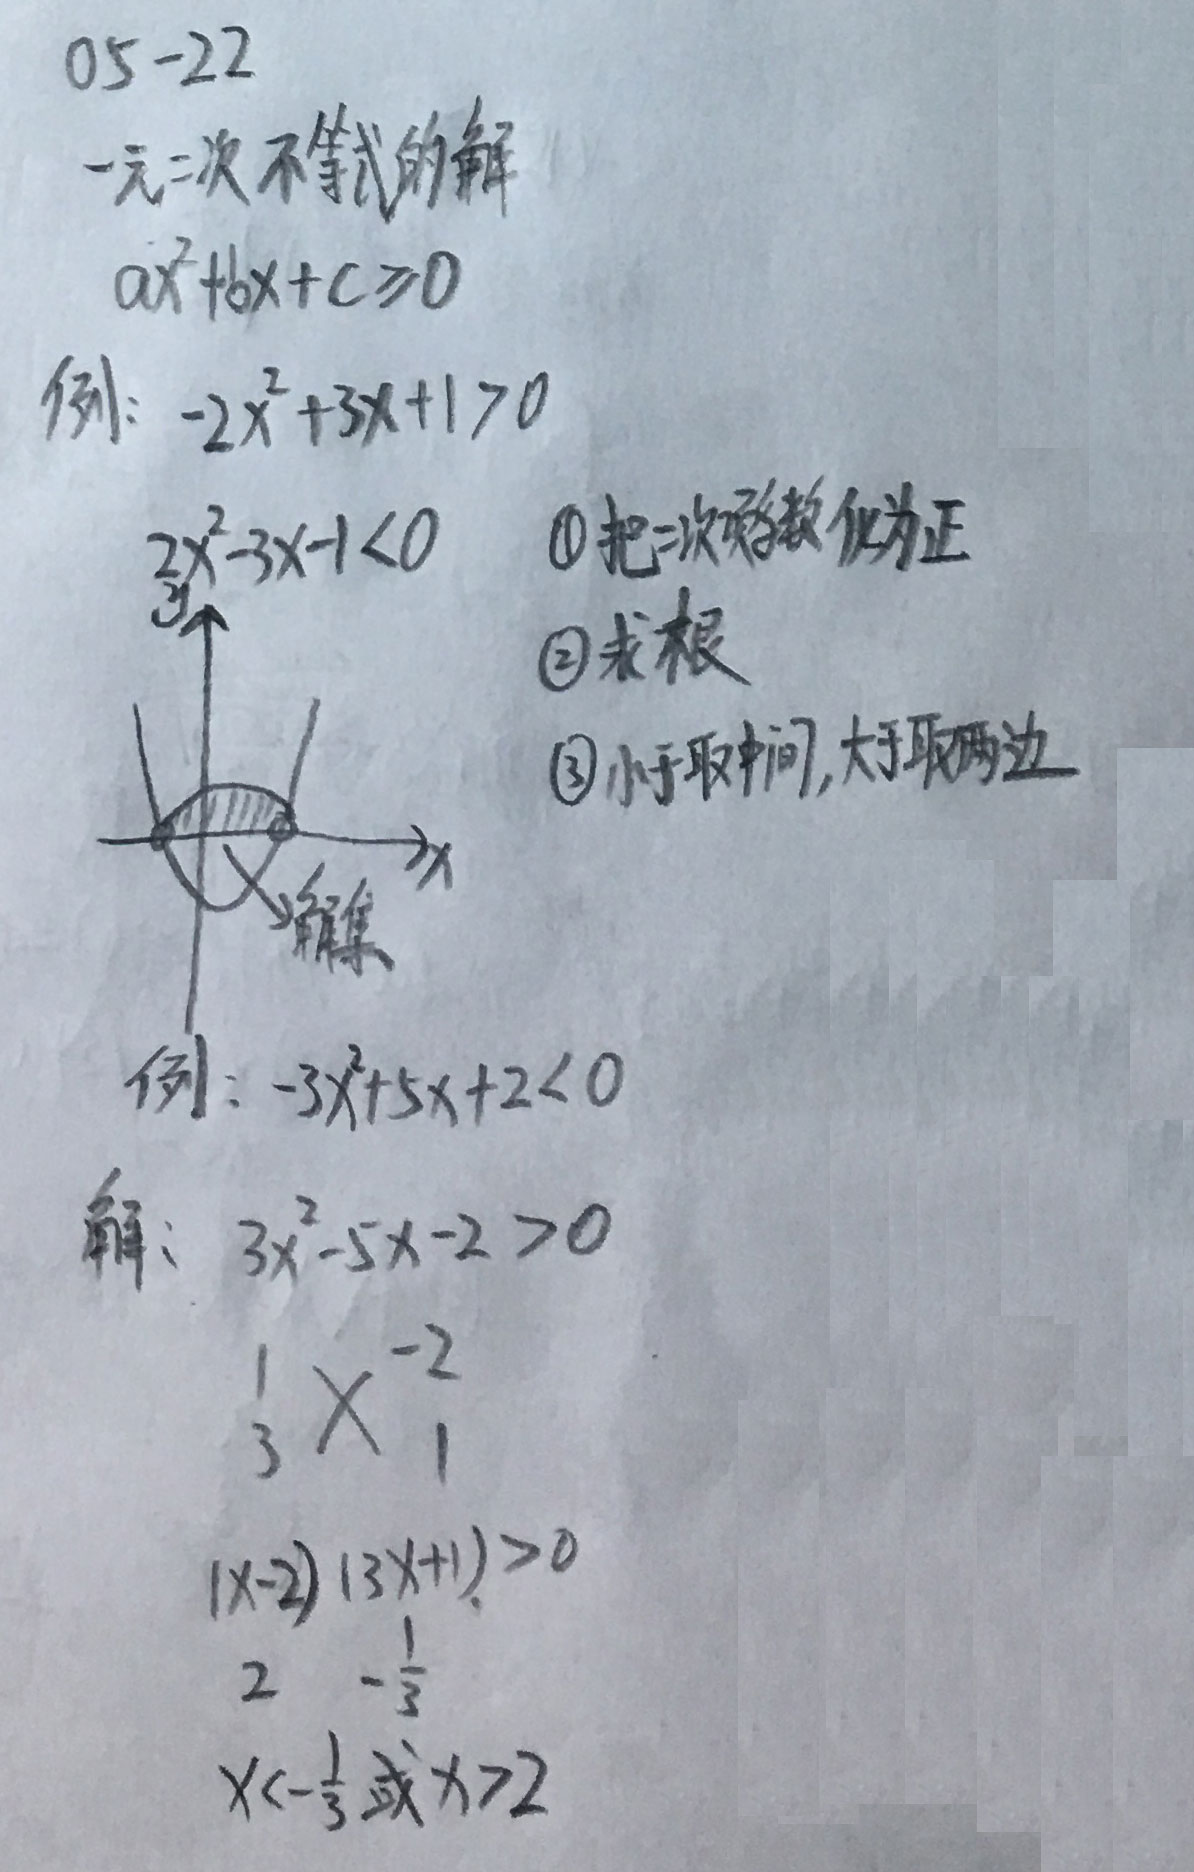 05-22
一元二次不等式的解
ax²+bx+c≥0
例: -2x²+3x+1>0
2x²-3x-1<0
①把二次项系数化为正
②求根
③小于取中间,大于取两边
y
x
解集
例: -3x²+5x+2<0
解: 3x²-5x-2>0
1 -2
3 1
(x-2)(3x+1)>0
2 -1/3
x<-1/3或x>2